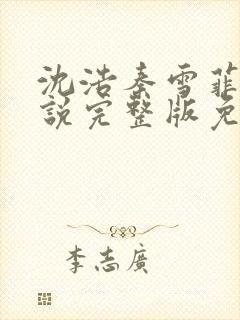 沈浩秦雪菲
說完整版免
李志廣